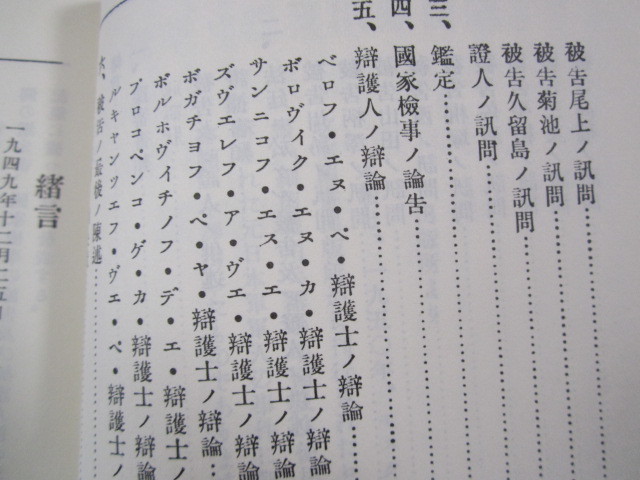 被告尾上ノ訊問
被告菊池ノ訊問
被告久留島ノ訊問
證人ノ訊問
三、鑑定
四、國家檢事ノ論告
五、辯護人ノ辯論
ベロフ・エヌ・ペ・辯護士ノ辯論
ボロヴイク・エヌ・カ・辯護士ノ辯論
サンニコフ・エス・エ・辯護士ノ辯論
ズヴエレフ・ア・ヴエ・辯護士ノ辯論
ボガチヨフ・ペ・ヤ・辯護士ノ辯論
ボルホヴイチノフ・デ・エ・辯護士ノ辯論
プロコペンコ・ゲ・カ・辯護士ノ辯論
ルキヤンツエフ・ヴエ・ペ・辯護士ノ
六、被告ノ最後ノ陳述
緒言
一九四九年十二月二五日